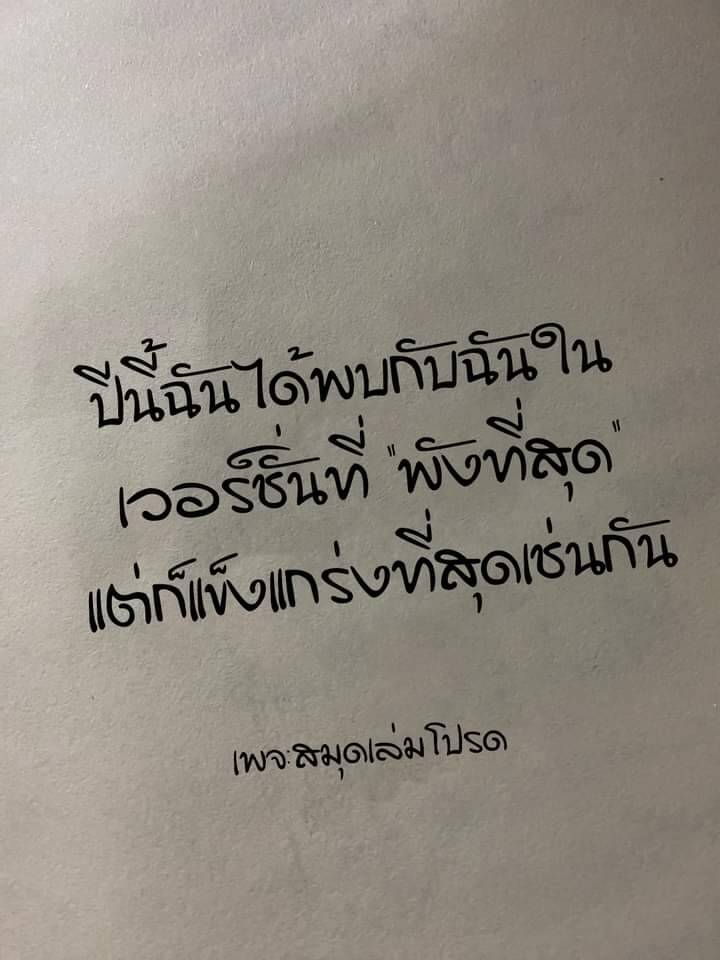 ปีนี้ฉันได้พบกับฉันใน
เวอร์ชั่นที่ "พังที่สุด"
แต่ก็แข็งแกร่งที่สุดเช่นกัน
เพจ:สมุดเล่มโปรด